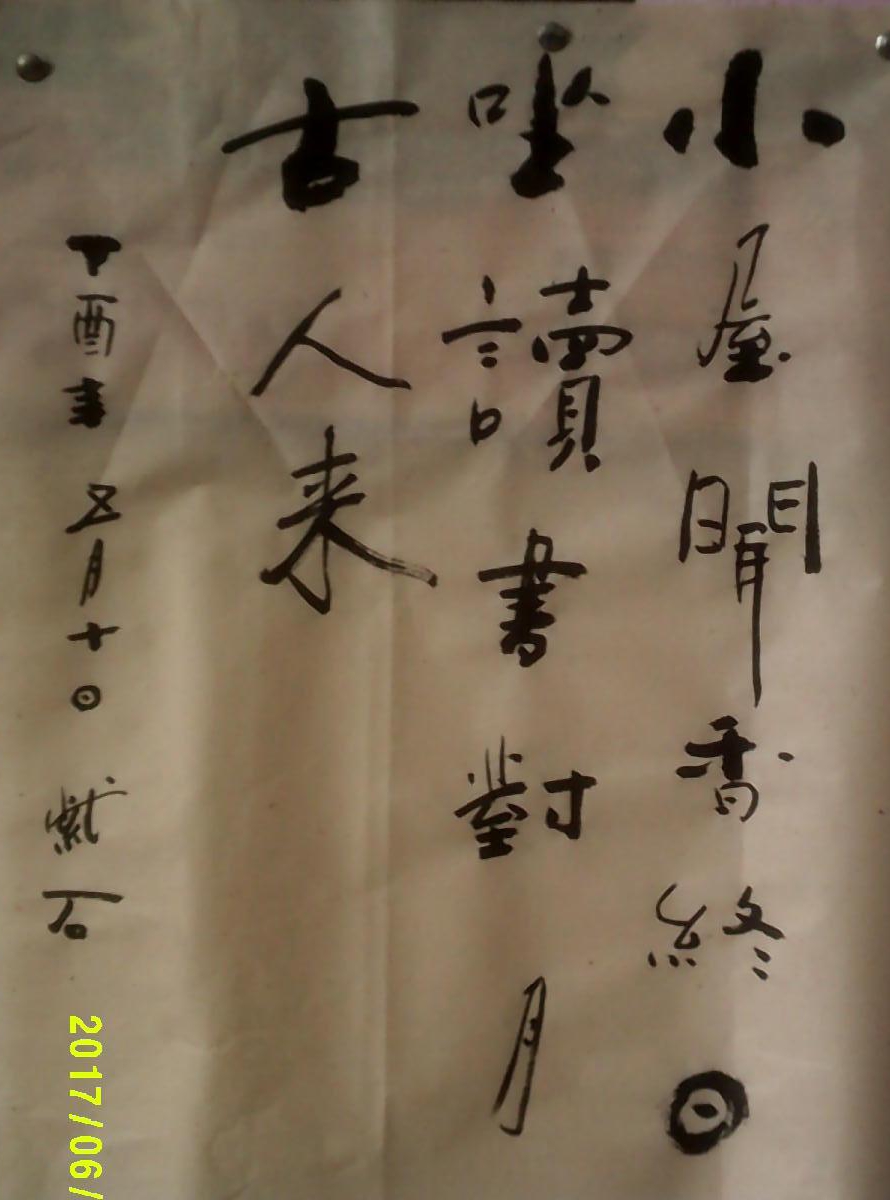 小屋聞香終日
坐讀書對月
古人来
丁酉書 五月十日 紫石
2017/06/